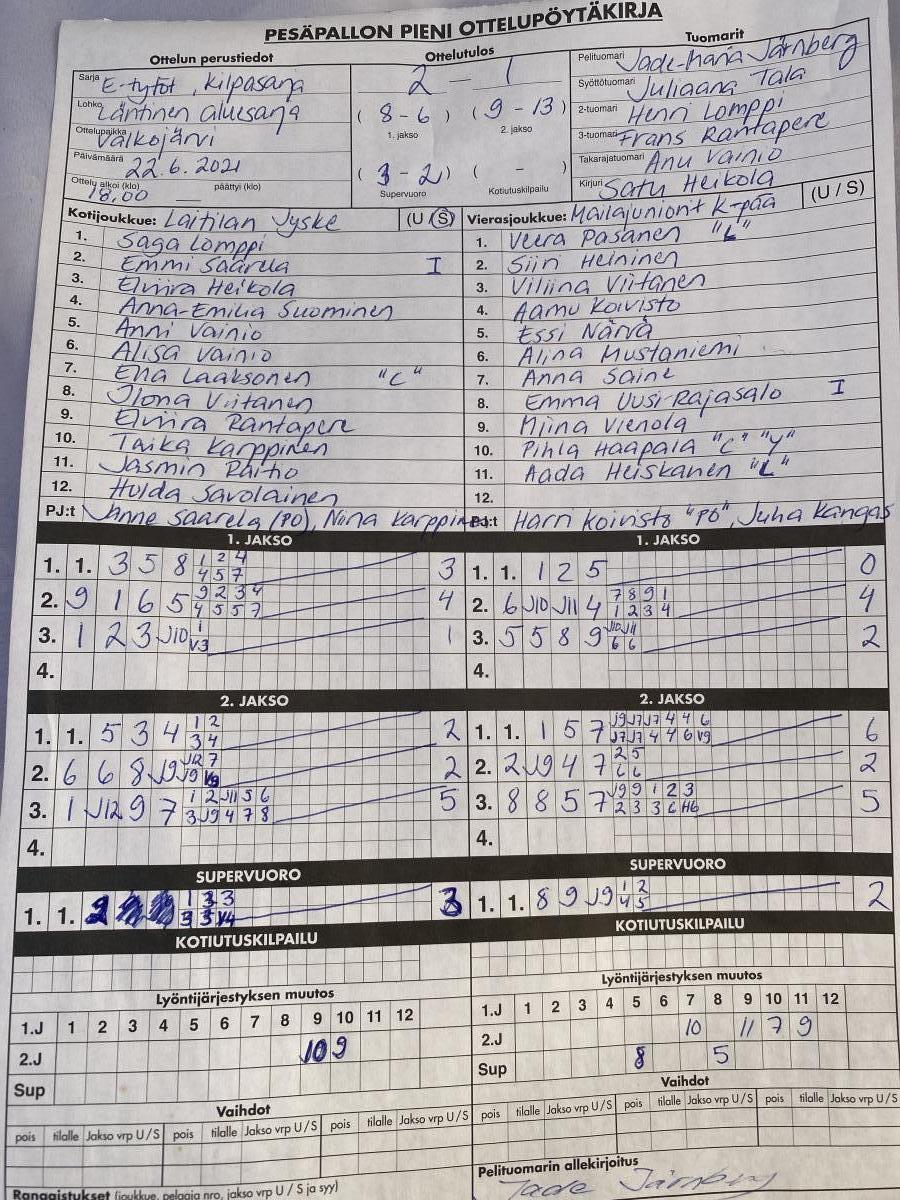 PESÄPALLON PIENI OTTELUPÖYTÄKIRJA
Ottelun perustiedot
Sarja E-tytöt, kilpasarja
Lohko Läntinen aluesarja
Ottelupaikka Valkojärvi
Päivämäärä 22.6.2021
Ottelu alkoi (klo) 18.00 päättyi (klo) —
Ottelutulos
2 – 1
( 8 - 6 ) ( 9 - 13 )
1. jakso 2. jakso
( 3 - 2 ) ( - )
Supervuoro Kotiutuskilpailu
Tuomarit
Pelituomari Jade-Maria Järnberg
Syöttötuomari Juliaana Tala
2-tuomari Henri Lomppi
3-tuomari Frans Rantapere
Takarajatuomari Anu Vainio
Kirjuri Satu Heikola
Kotijoukkue: Laitilan Jyske (U / S)
1. Saga Lomppi
2. Emmi Saarela I
3. Elviira Heikola
4. Anna-Emilia Suominen
5. Anni Vainio
6. Alisa Vainio
7. Ella Laaksonen "C"
8. Ilona Viitanen
9. Elviira Rantapere
10. Taika Karppinen
11. Jasmin Raitio
12. Hulda Savolainen
PJ:t Janne Saarela (PO), Niina Karppinen
Vierasjoukkue: Mailajuniorit K-pää (U / S)
1. Veera Pasanen "L"
2. Siiri Heininen
3. Viliina Viitanen
4. Aamu Koivisto
5. Essi Närvä
6. Alina Mustaniemi
7. Anna Saine
8. Emma Uusi-Rajasalo I
9. Miina Vienola
10. Pihla Haapala "C" "Y"
11. Aada Heiskanen "L"
12.
PJ:t Harri Koivisto "PO", Juha Kangas
1. JAKSO
1. 1. 3 5 8 1 2 4 3
4 5 7
2. 9 1 6 5 9 2 3 4 4
4 5 5 7
3. 1 2 3 J10 1 1
V3
4.
1. JAKSO
1. 1. 1 2 5 0
2. 6 J10 J11 4 7 8 9 1 4
1 2 3 4
3. 5 5 8 9 J10 J11 2
6 6
4.
2. JAKSO
1. 1. 5 3 4 1 2 2
3 4
2. 6 6 8 J9 J12 7 2
J9
3. 1 J12 9 7 1 2 J11 5 6 5
3 J9 4 7 8
4.
2. JAKSO
1. 1. 1 5 7 J9 J7 J7 4 4 6 6
J7 J7 4 4 6 V9
2. 2 J9 4 7 2 5 2
6 6
3. 8 8 5 7 J9 9 1 2 3 5
2 3 3 6 H6
4.
SUPERVUORO
1. 1. 2 1 3 3 3
3 5 V4
SUPERVUORO
1. 1. 8 9 J9 1 2 2
4 5
KOTIUTUSKILPAILU
KOTIUTUSKILPAILU
Lyöntijärjestyksen muutos
1.J 1 2 3 4 5 6 7 8 9 10 11 12
2.J 10 9
Sup
Lyöntijärjestyksen muutos
1.J 1 2 3 4 5 6 7 8 9 10 11 12
2.J 10 11 7 9
Sup 8 5
Vaihdot
pois tilalle Jakso vrp U / S pois tilalle Jakso vrp U / S pois tilalle Jakso vrp U / S
Vaihdot
pois tilalle Jakso vrp U / S pois tilalle Jakso vrp U / S pois tilalle Jakso vrp U / S
Rangaistukset (joukkue, pelaaja nro, jakso vrp U / S ja syy)
Pelituomarin allekirjoitus
Jade Järnberg